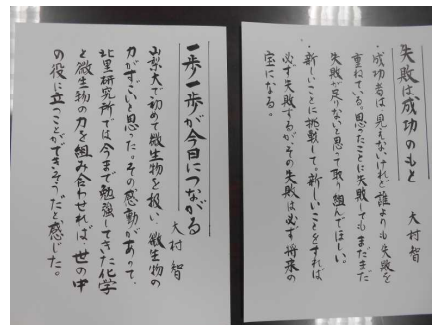 失敗は成功のもと
大村 智
・成功者は見えないけれど誰よりも失敗を
重ねている。思ったことに失敗してもまだまだ
失敗が足りないと思って取り組んでほしい。
・新しいことに挑戦して。新しいことをすれば、
必ず失敗するがその失敗は必ず将来の
宝になる。
一歩一歩が今日につながる
大村 智
山梨大で初めて微生物を扱い、微生物の
力がすごいと思った。その感動があって、
北里研究所では今まで勉強してきた化学
と微生物の力を組み合わせれば、世の中
の役に立つことができそうだと感じた。